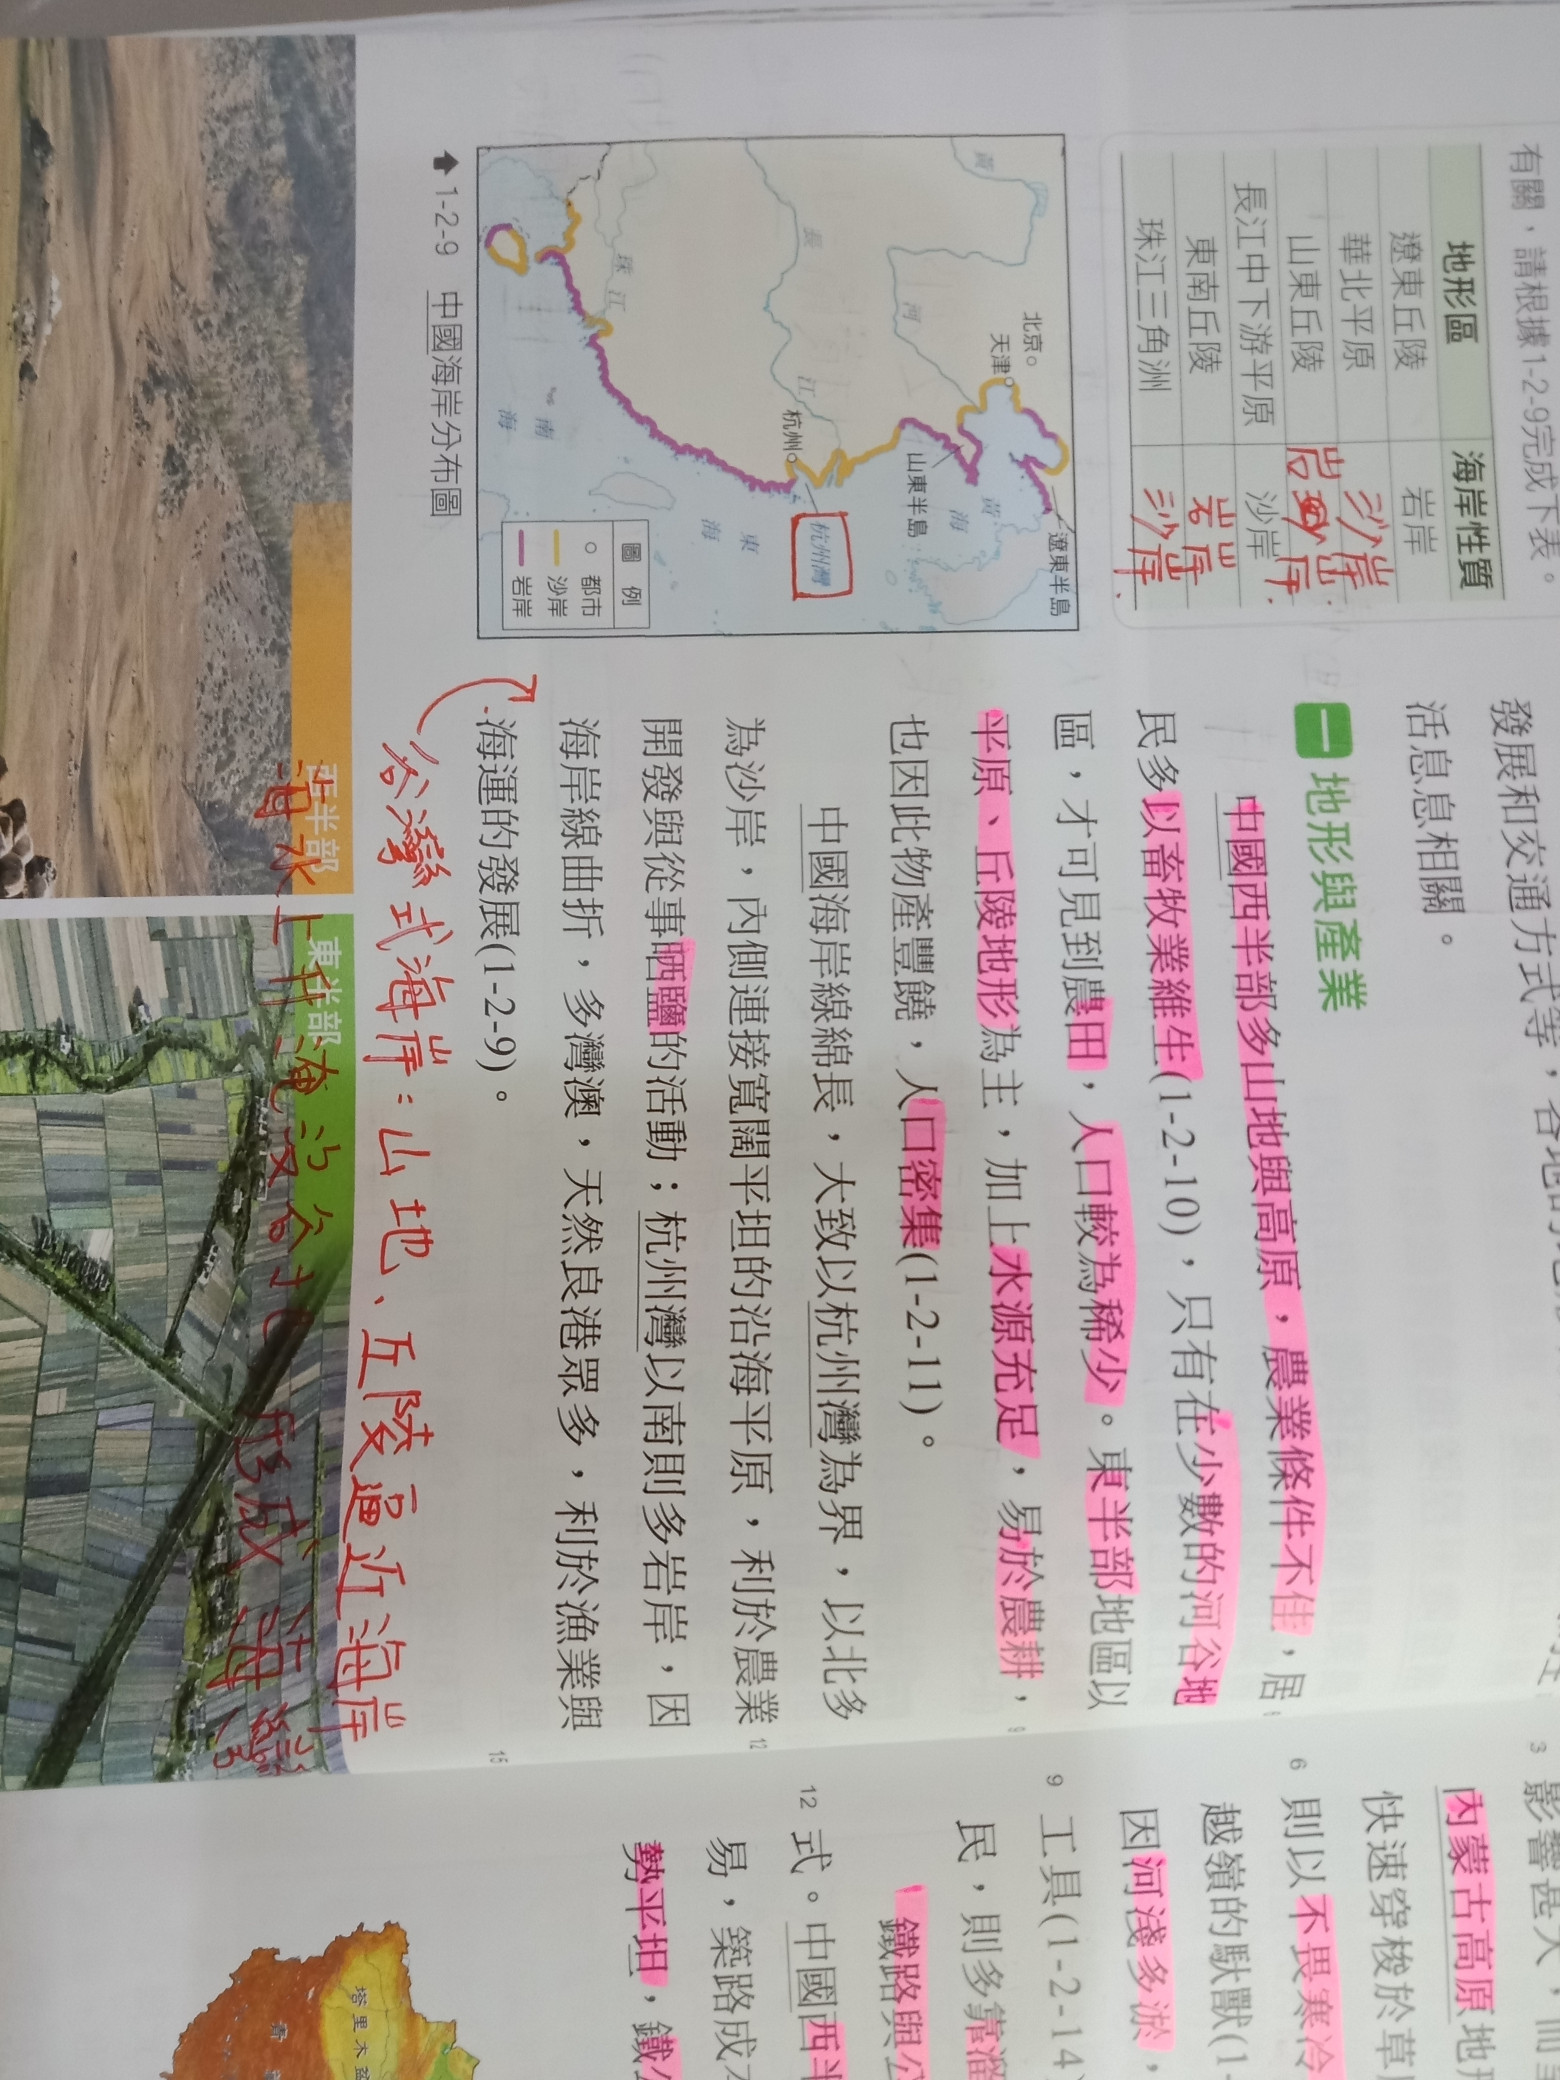 有關，請根據1-2-9完成下表。
地形區 海岸性質
遼東丘陵 岩岸
華北平原 沙岸
山東丘陵 岩岸
長江中下游平原 沙岸
東南丘陵 岩岸
珠江三角洲 沙岸
黃
河
北京
天津
長
江
杭州
珠江
山東半島
遼東半島
黃海
杭州灣
東海
南海
圖例
都市
沙岸
岩岸
1-2-9 中國海岸分布圖
發展和交通方式等，各地
活息息相關。
一 地形與產業
中國西半部多山地與高原，農業條件不佳，居
民多以畜牧業維生(1-2-10)，只有在少數的河谷地
區，才可見到農田，人口較為稀少。東半部地區以
平原、丘陵地形為主，加上水源充足，易於農耕，
也因此物產豐饒，人口密集(1-2-11)。
中國海岸線綿長，大致以杭州灣為界，以北多
為沙岸，內側連接寬闊平坦的沿海平原，利於農業
開發與從事晒鹽的活動；杭州灣以南則多岩岸，因
海岸線曲折，多灣澳，天然良港眾多，利於漁業與
海運的發展(1-2-9)。
6
9
12
15
谷灣式海岸：山地、丘陵逼近海岸
海水上升淹沒谷地形成海灣
西半部
東半部
3 影響甚大，而
內蒙古高原地形
快速穿梭於草
6 則以不畏寒冷
越嶺的馱獸(1-
因河淺多淤，
9 工具(1-2-14)
民，則多靠
鐵路與公
12 式。中國西半
易，築路成
勢平坦，鐵公
塔里木盆
青